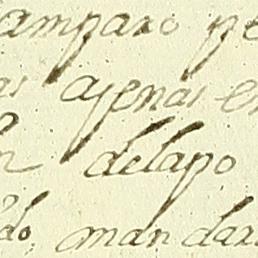 amparo pe
as agenas en
n delapo
do mandar